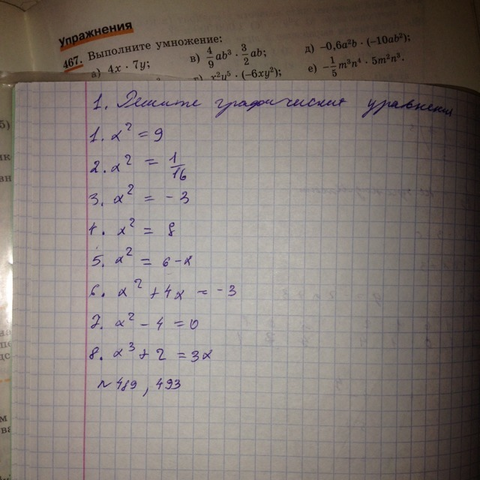 Упражнения
467. Выполните умножение:
а) 4x · 7y;
в) 4/9 ab³ · 3/2 ab;
д) –0,6a²b · (–10ab²);
г) x²y⁵ · (–6xy²);
е) –1/5 m³n⁴ · 5m²n³.
1. Решите графически уравнения
1. x² = 9
2. x² = 1/16
3. x² = -3
4. x² = 8
5. x² = 6-x
6. x² + 4x = -3
7. x² - 4 = 0
8. x³ + 2 = 3x
№ 489, 493